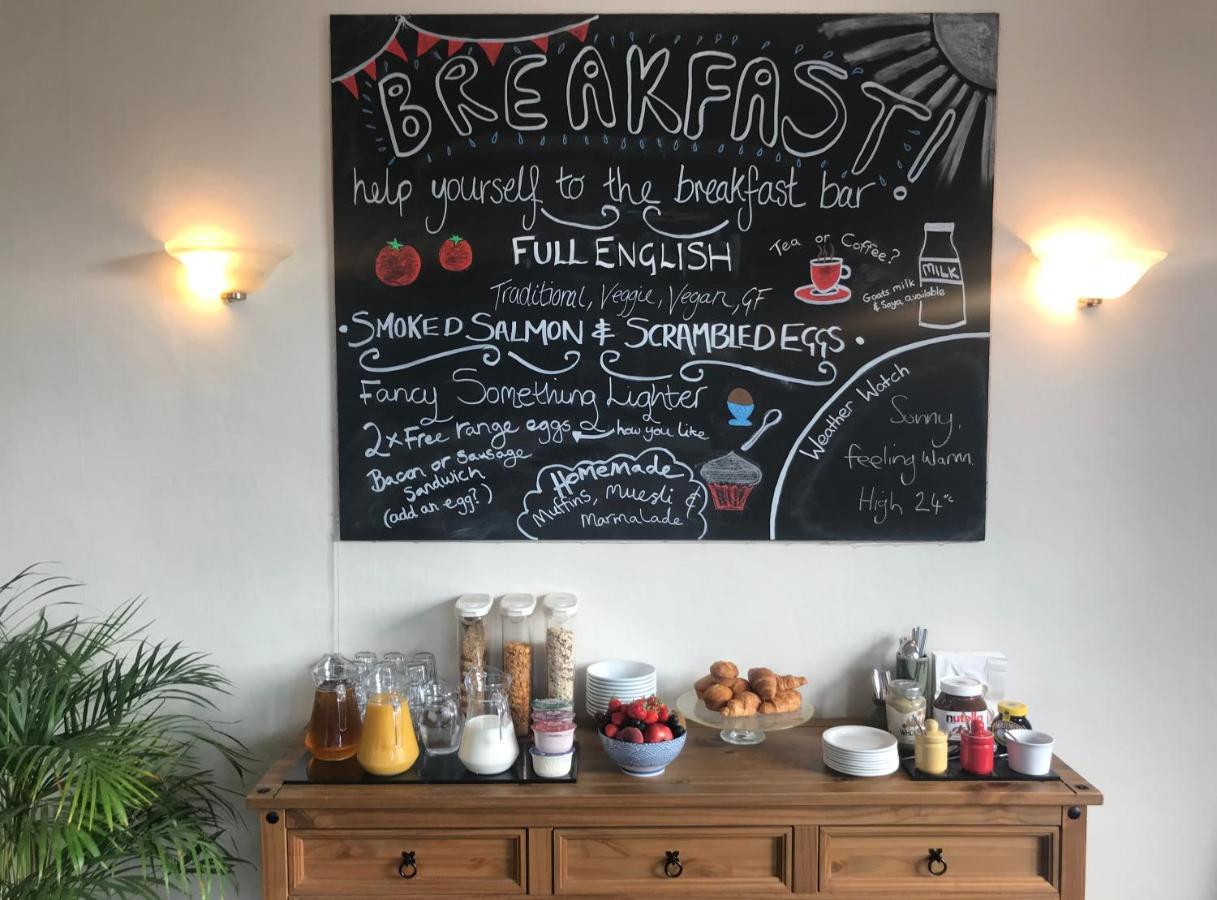 BREAKFAST!
help yourself to the breakfast bar
FULL ENGLISH
Traditional, Veggie, Vegan, GF
Tea or Coffee?
MILK
Goats milk
& Soya available
• SMOKED SALMON & SCRAMBLED EGGS •
Fancy Something Lighter
2 x Free range eggs
how you like
Bacon or Sausage
Sandwich
(add an egg?)
Homemade
Muffins, Muesli &
Marmalade
Weather Watch
Sunny,
feeling warm.
High 24°c
nutella